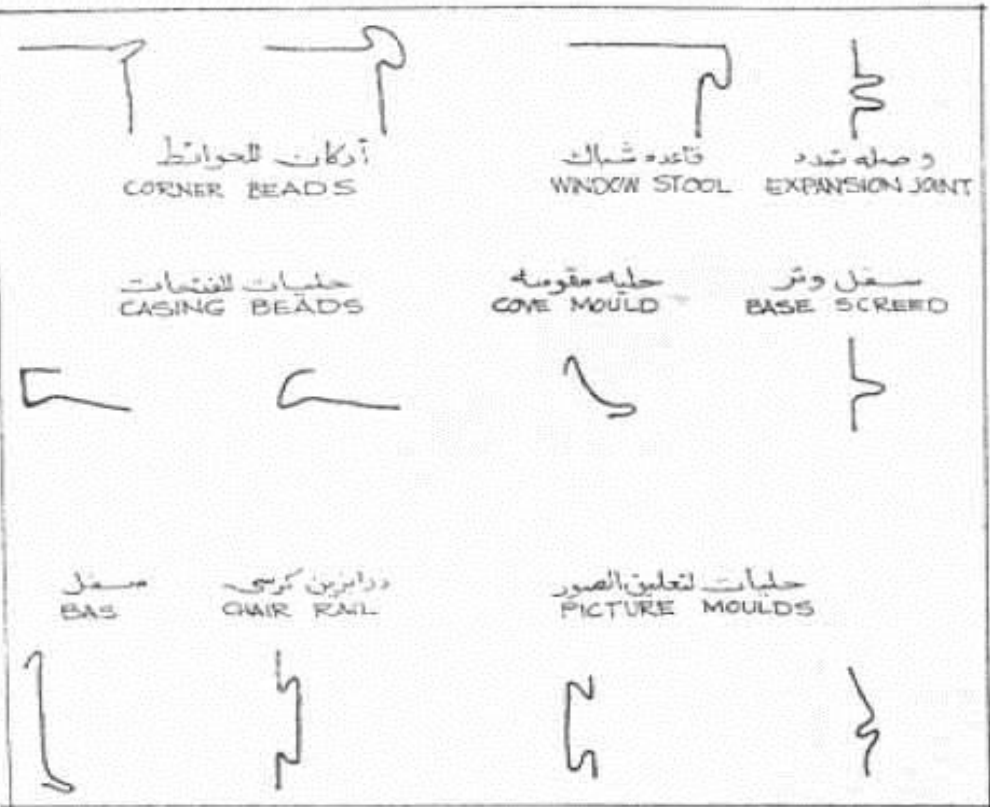 أركان للحوائط
CORNER BEADS
قاعده شباك
WINDOW STOOL
وصله تمدد
EXPANSION JOINT
حليات للفتحات
CASING BEADS
حليه مقوسه
COVE MOULD
سفل وتر
BASE SCREED
سفل
BAS
درابزين كرسى
CHAIR RAIL
حليات لتعليق الصور
PICTURE MOULDS